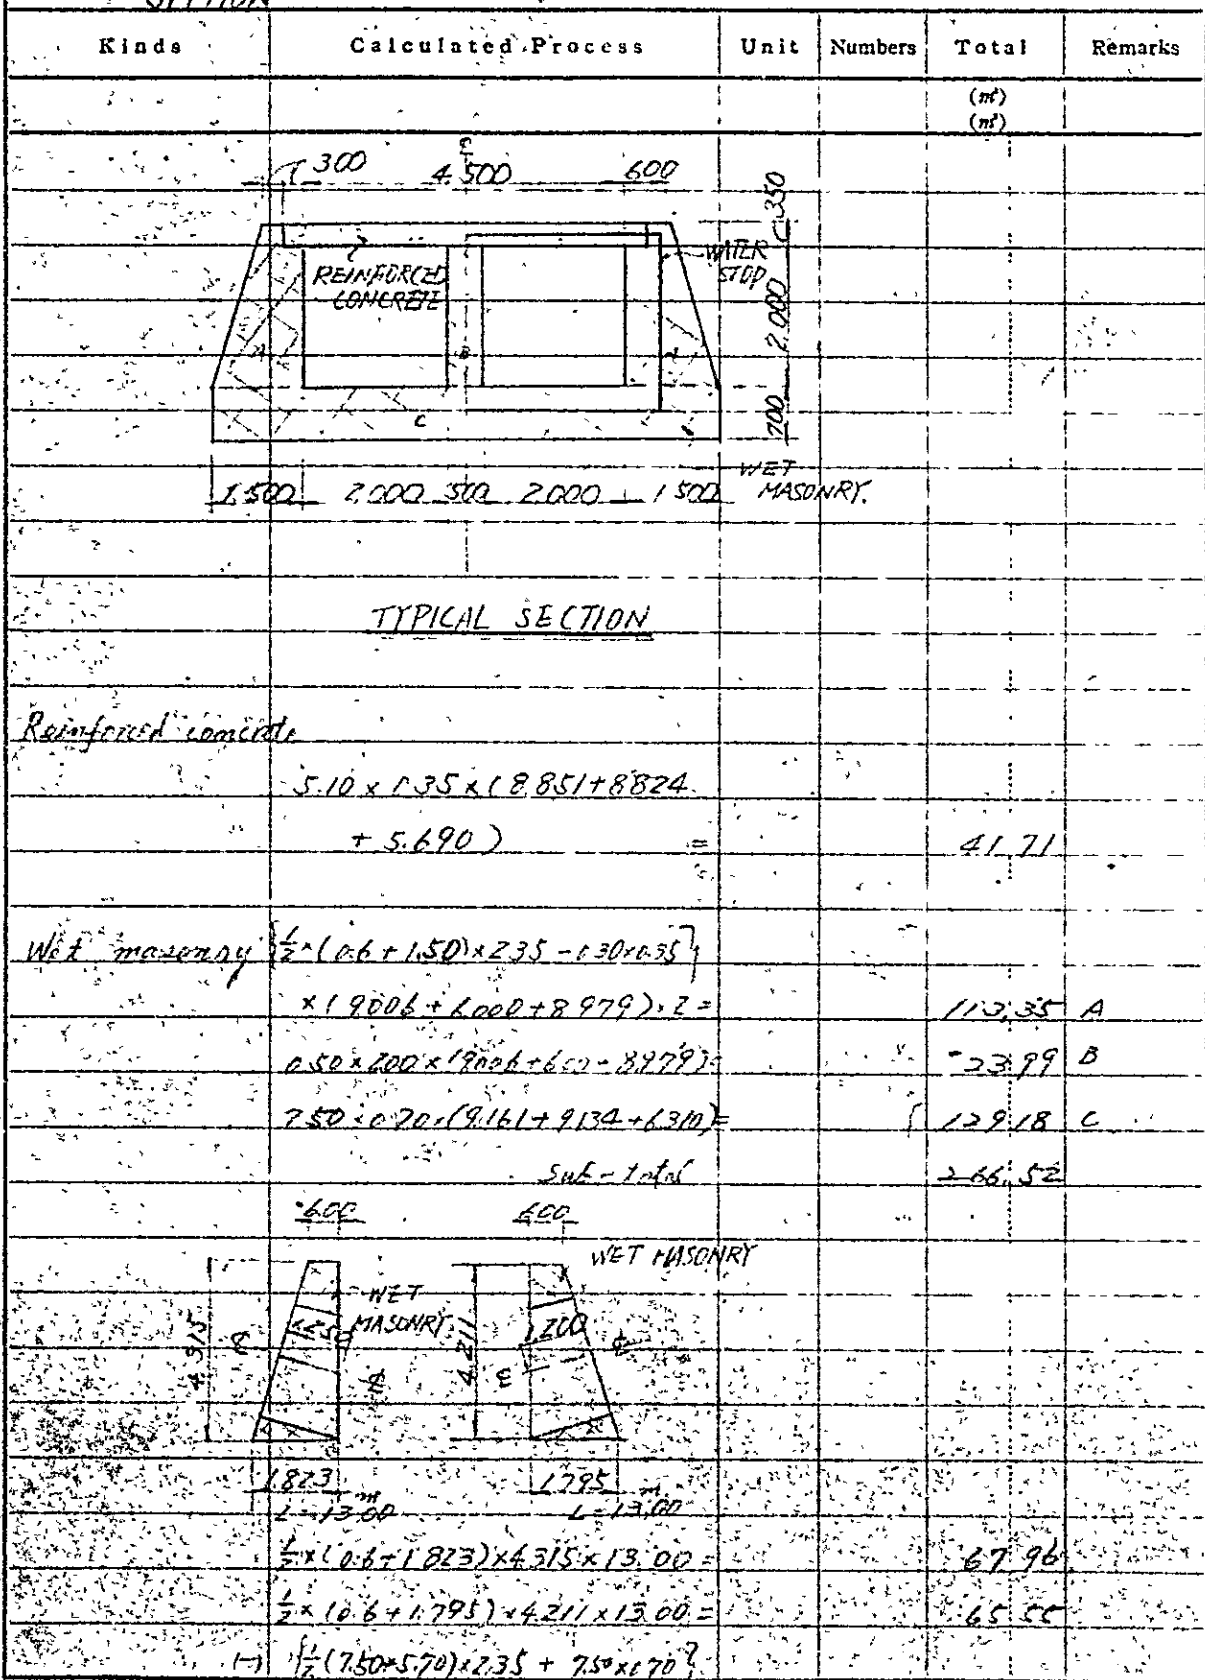 SECTION
Kinds Calculated Process Unit Numbers Total Remarks
(m²)
(m³)
300 4.500 600
350
REINFORCED
CONCRETE
WATER
STOP
2.000
A B A
C
700
1.500 2.000 500 2.000 1.500
WET
MASONRY.
TYPICAL SECTION
Reinforced concrete
5.10 x 0.35 x (8.851+8.824
+ 5.690) = 41.71
Wet masonry {1/2 x (0.6 + 1.50) x 2.35 - 0.30 x 0.35}
x (9.006 + 6.000 + 8.979) x 2 = 113.35 A
0.50 x 2.00 x (9.006 + 6.00 + 8.979) = 23.99 B
7.50 x 0.70 x (9.161 + 9.134 + 6.310) = 129.18 C
Sub-total 266.52
600 600
WET MASONRY
WET
MASONRY
4.315 4.211 1.200
1.823 1.795
L=13.00m L=13.00m
1/2 x (0.6 + 1.823) x 4.315 x 13.00 = 67.96
1/2 x (0.6 + 1.795) x 4.211 x 13.00 = 65.55
(-) {1/2 (7.50+5.70) x 2.35 + 7.50 x 0.70}